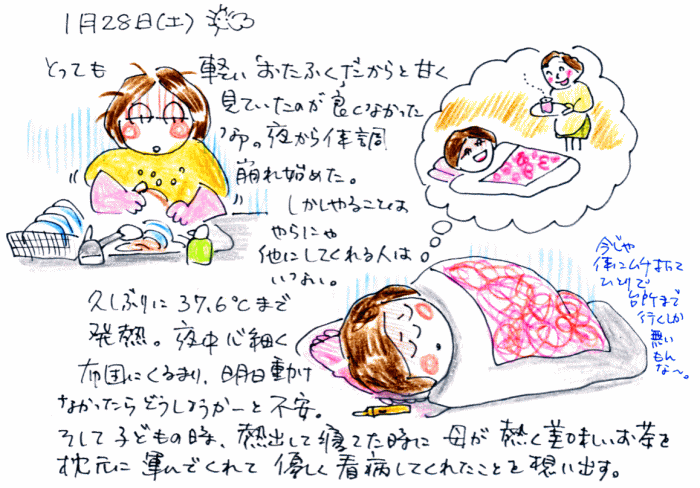 1月28日(土)
とっても 軽い「おたふく」だからと甘く
見ていたのが良くなかった
の夜から体調
崩れ始めた。
しかしやることは
やらにゃ
他にしてくれる人は
いない。
久しぶりに37.6℃まで
発熱。夜中心細く
布団にくるまり、明日動け
なかったらどうしようかーと不安。
そして子どもの時、熱出して寝てた時に母が熱く美味しいお茶を
枕元に運んでくれて優しく看病してくれたことを想い出す。
今じゃ
体にムチ打って
ひとりで
台所まで
行くしか
無い
もん
な〜。